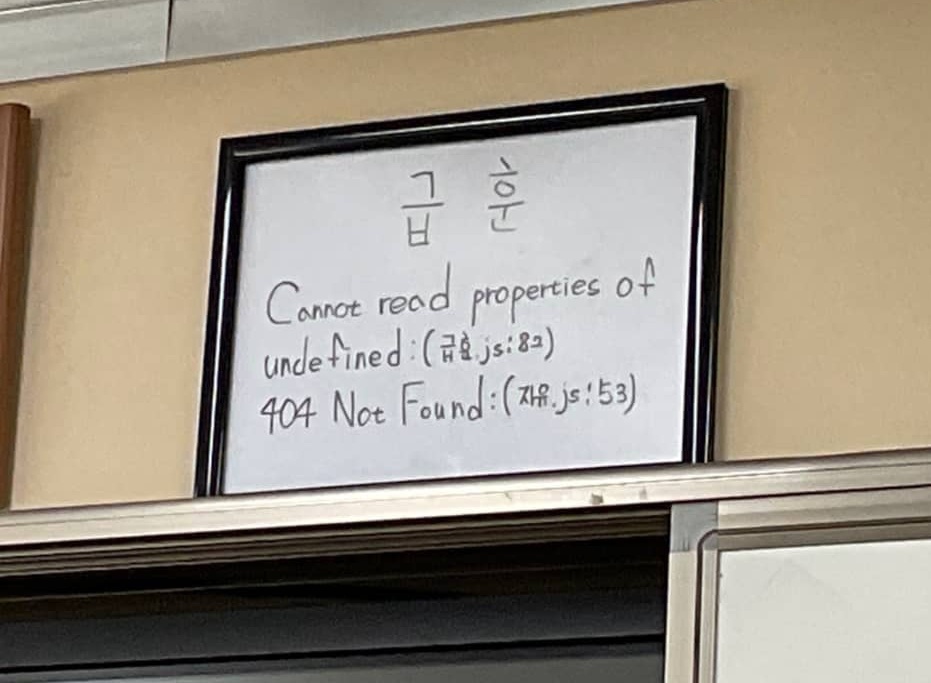 급 훈
Cannot read properties of
undefined:(급훈.js:82)
404 Not Found:(자유.js:53)